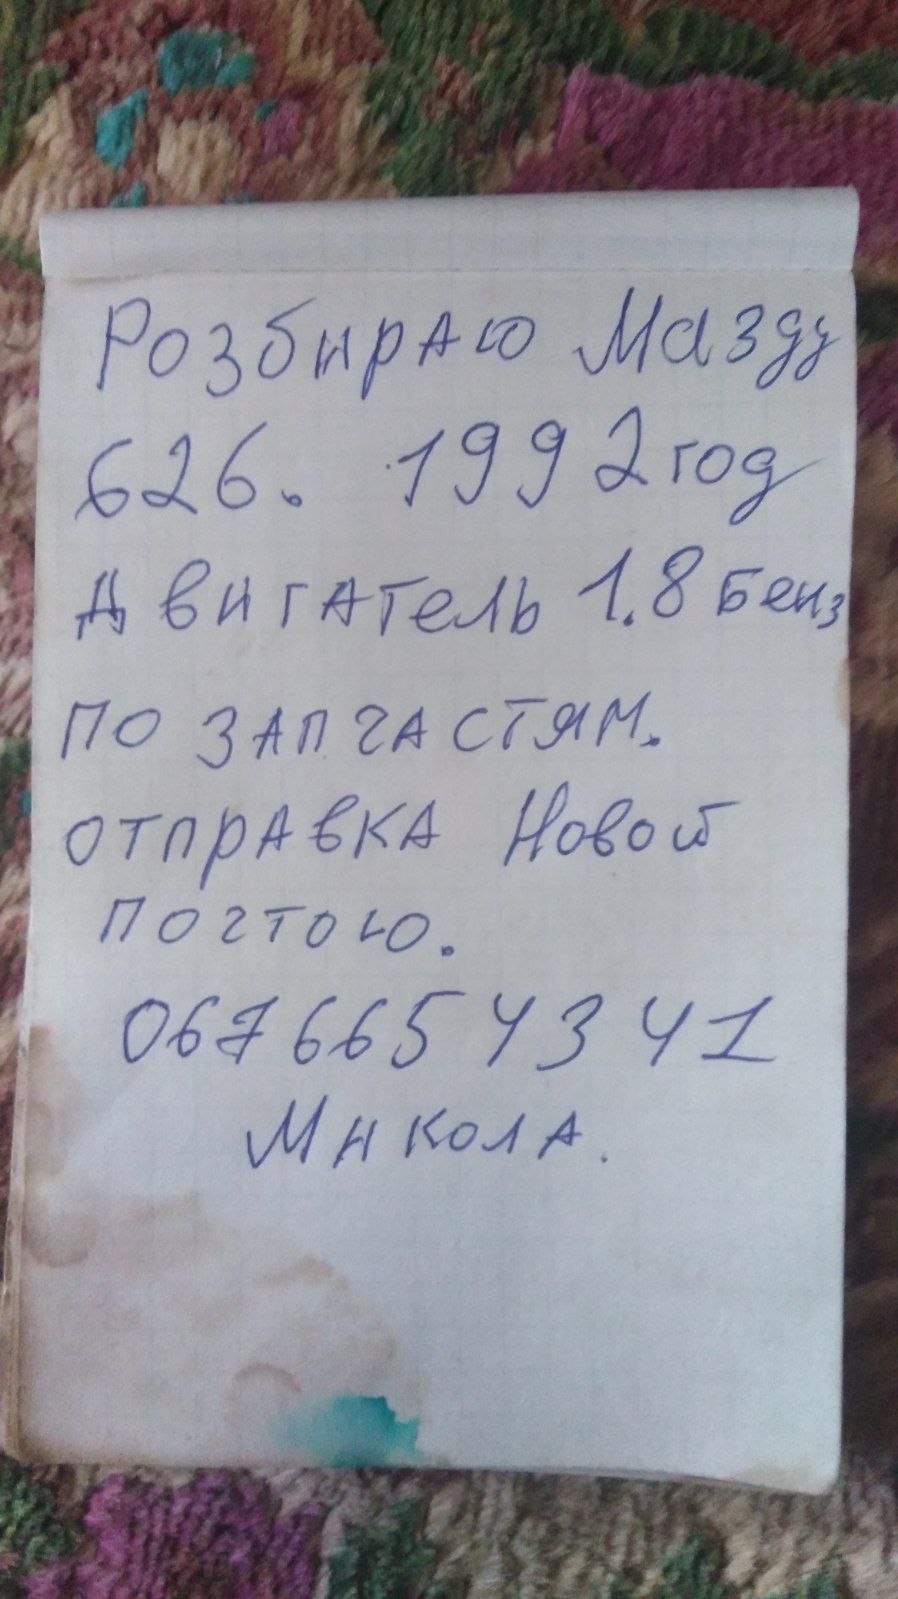 Розбираю Мазду
626. 1992 год
Двигатель 1.8 Бенз
по запчастям.
отправка Новой
почтою.
067 665 43 41
Микола.